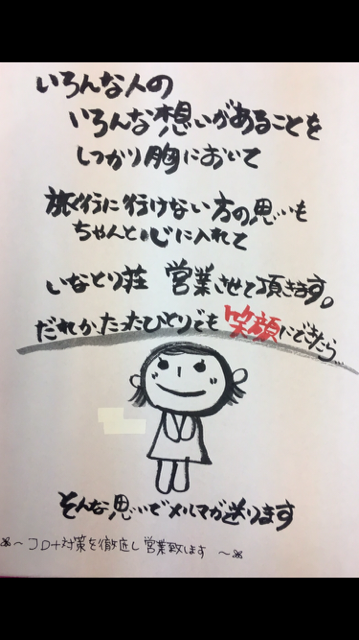 いろんな人の
いろんな想いがあることを
しっかり胸において
旅行に行けない方の思いも
ちゃんと心に入れて
いなとり荘 営業させて頂きます。
だれかたったひとりでも笑顔にできたら…
そんな思いでメルマガ送ります
～コロナ対策を徹底し営業致します～